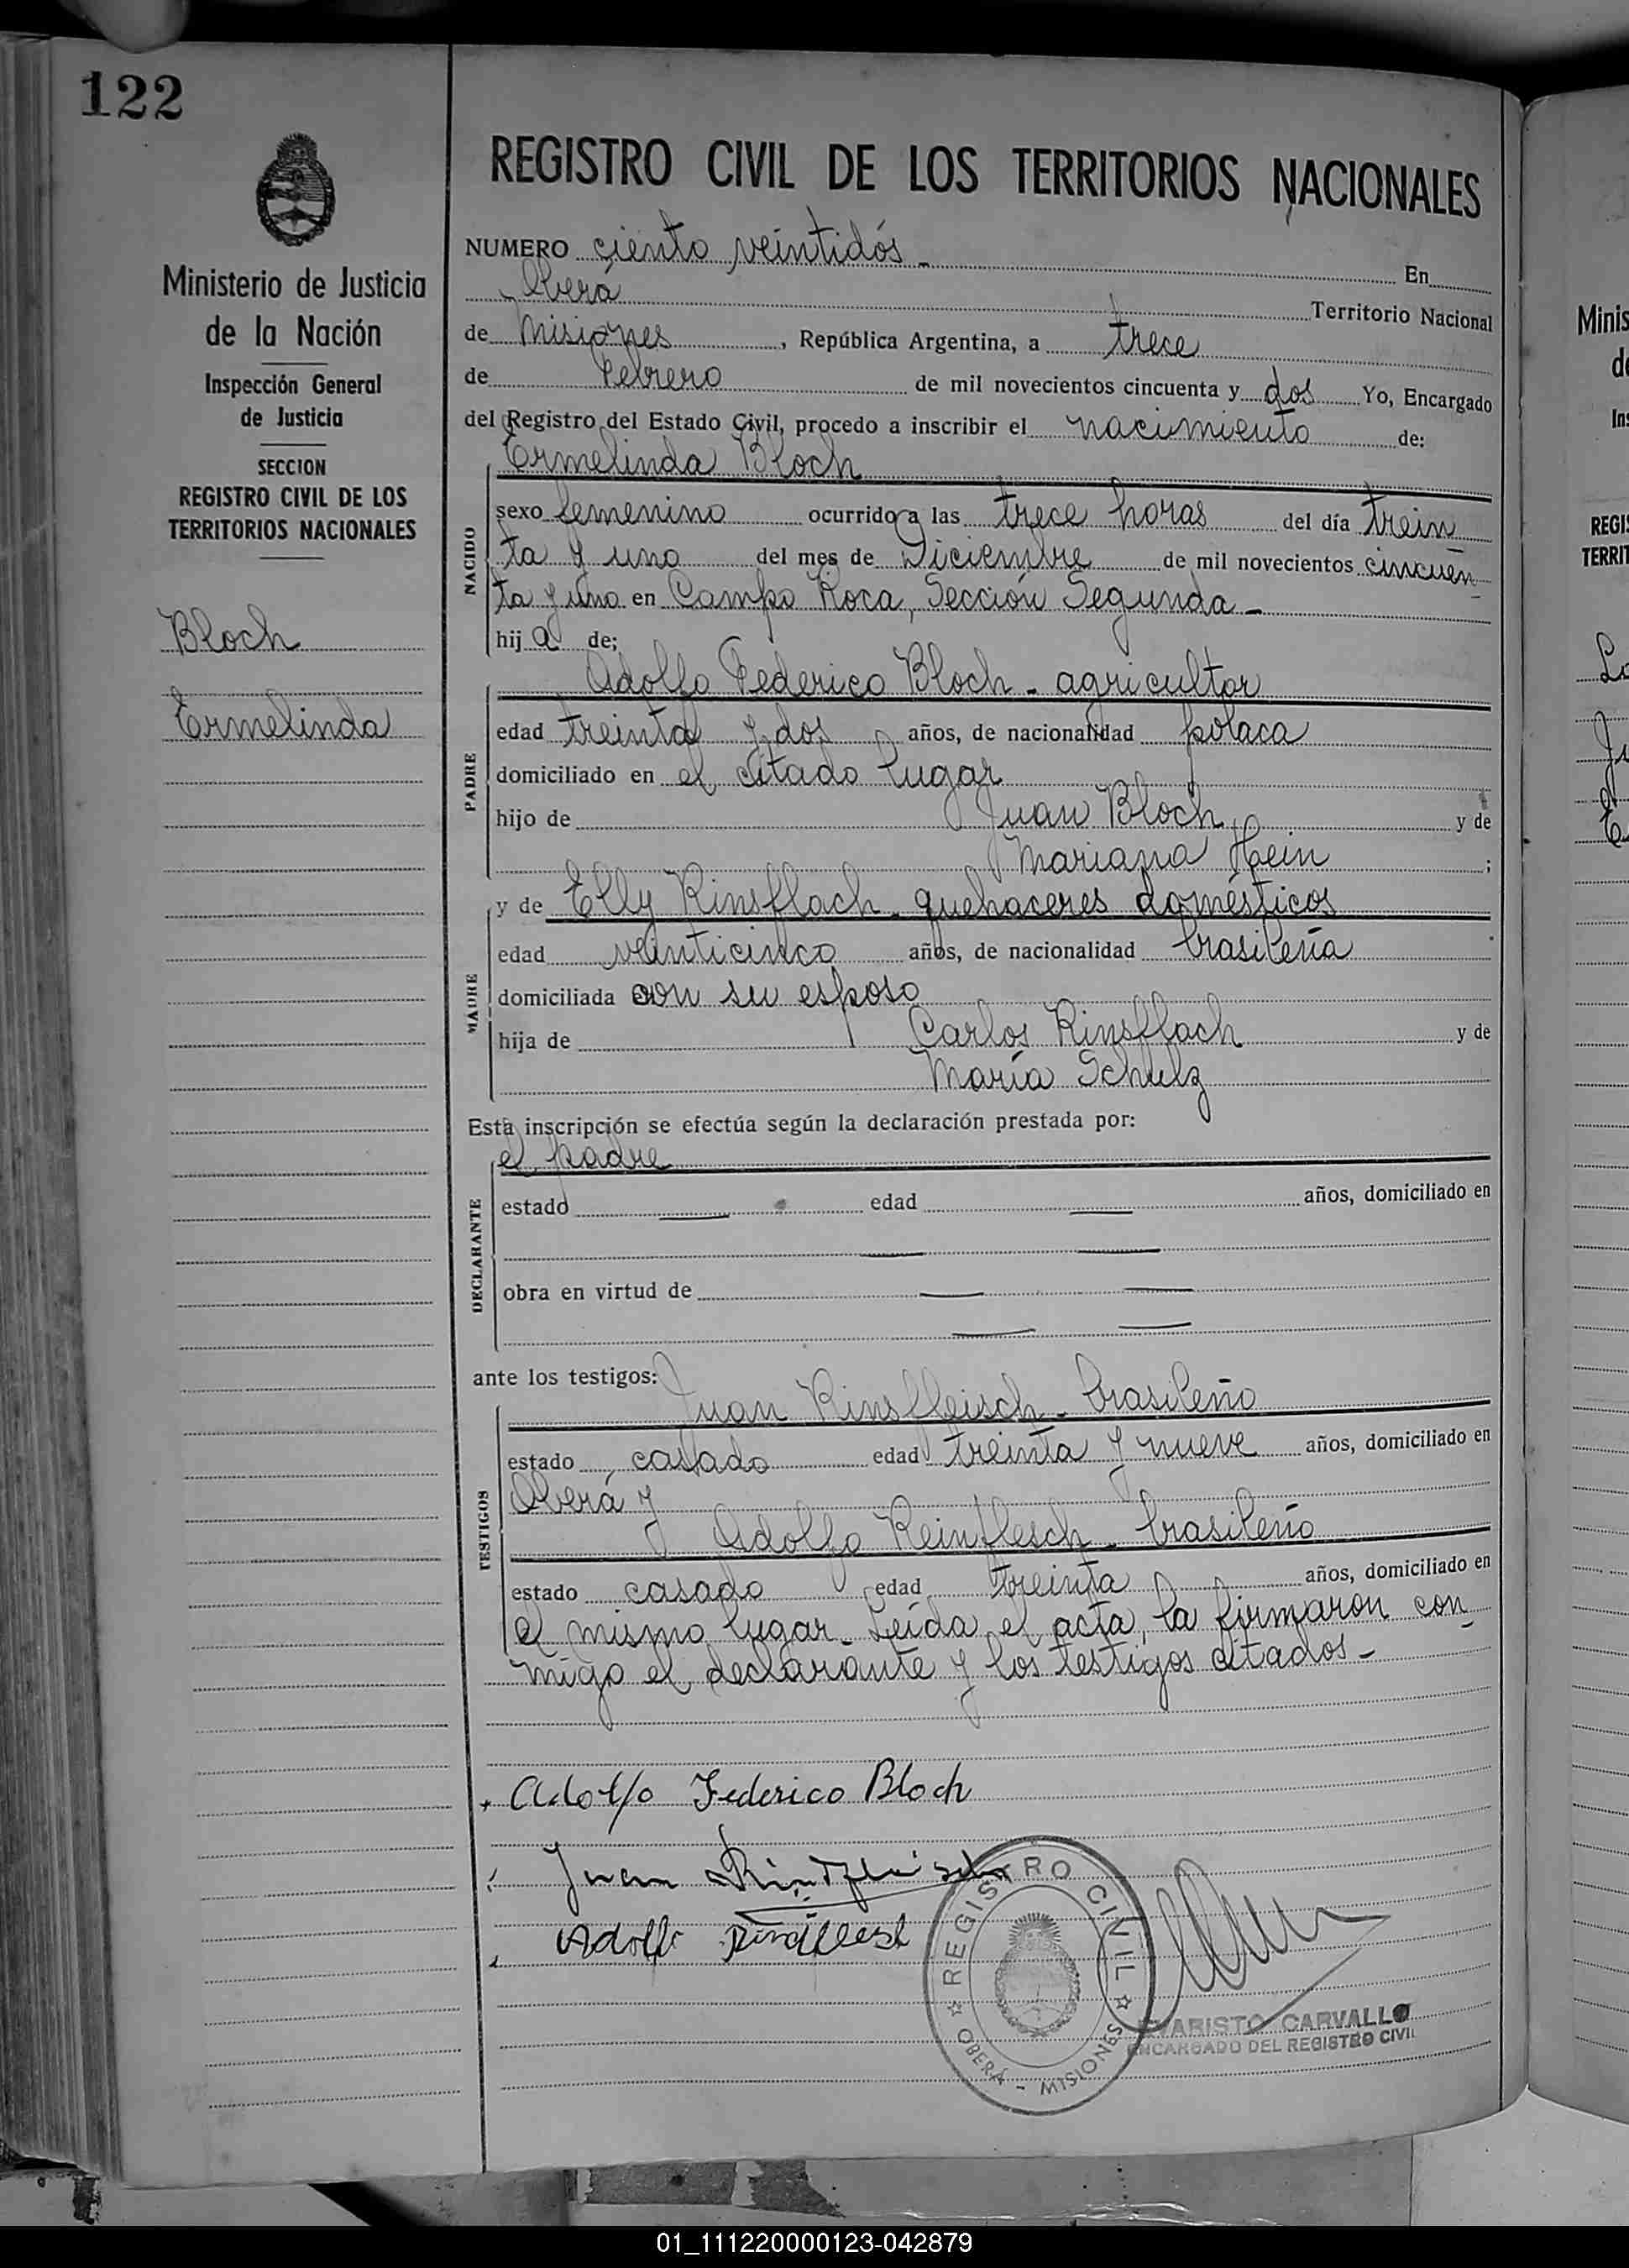 122
REGISTRO CIVIL DE LOS TERRITORIOS NACIONALES
Ministerio de Justicia
de la Nación
Inspección General
de Justicia
SECCION
REGISTRO CIVIL DE LOS
TERRITORIOS NACIONALES
Bloch
Ermelinda
NUMERO ciento veintidós - En
Oberá Territorio Nacional
de Misiones, República Argentina, a trece
de Febrero de mil novecientos cincuenta y dos Yo, Encargado
del Registro del Estado Civil, procedo a inscribir el nacimiento de:
Ermelinda Bloch
NACIDO
sexo femenino ocurrido a las trece horas del día trein
ta y uno del mes de Diciembre de mil novecientos cincuen
ta y uno en Campo Roca, Sección Segunda -
hija de;
Adolfo Federico Bloch - agricultor
PADRE
edad treinta y dos años, de nacionalidad polaca
domiciliado en el citado lugar
hijo de Juan Bloch y de
Mariana Hein ;
y de Elly Rinsflach - quehaceres domésticos
MADRE
edad veinticinco años, de nacionalidad brasileña
domiciliada con su esposo
hija de Carlos Rinsflach y de
María Schulz
Esta inscripción se efectúa según la declaración prestada por:
el padre
DECLARANTE
estado edad años, domiciliado en
obra en virtud de
ante los testigos:
Juan Rinsfleisch - brasileño
TESTIGOS
estado casado edad treinta y nueve años, domiciliado en
Oberá y
Adolfo Reinflesch - brasileño
estado casado edad treinta años, domiciliado en
el mismo lugar - Leída el acta, la firmaron con
migo el declarante y los testigos citados -
Adolfo Federico Bloch
Juan
Adolf
REGISTRO CIVIL
OBERÁ - MISIONES
EVARISTO CARVALLO
ENCARGADO DEL REGISTRO CIVIL
Minis
de
Ins
REGIS
TERRIT
01_111220000123-042879